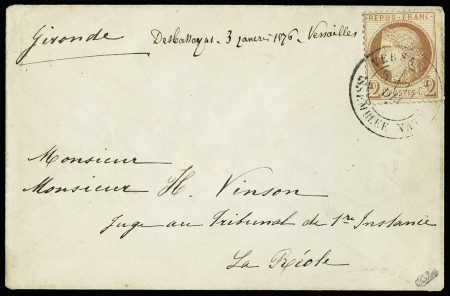 Gironde
Desbassayns - 3 janvier 1876 - Versailles
REPUB. FRANC.
2 POSTES 2
ASSEMBLEE NAT
Monsieur
Monsieur H. Vinson
Juge au Tribunal de 1re Instance
La Réole